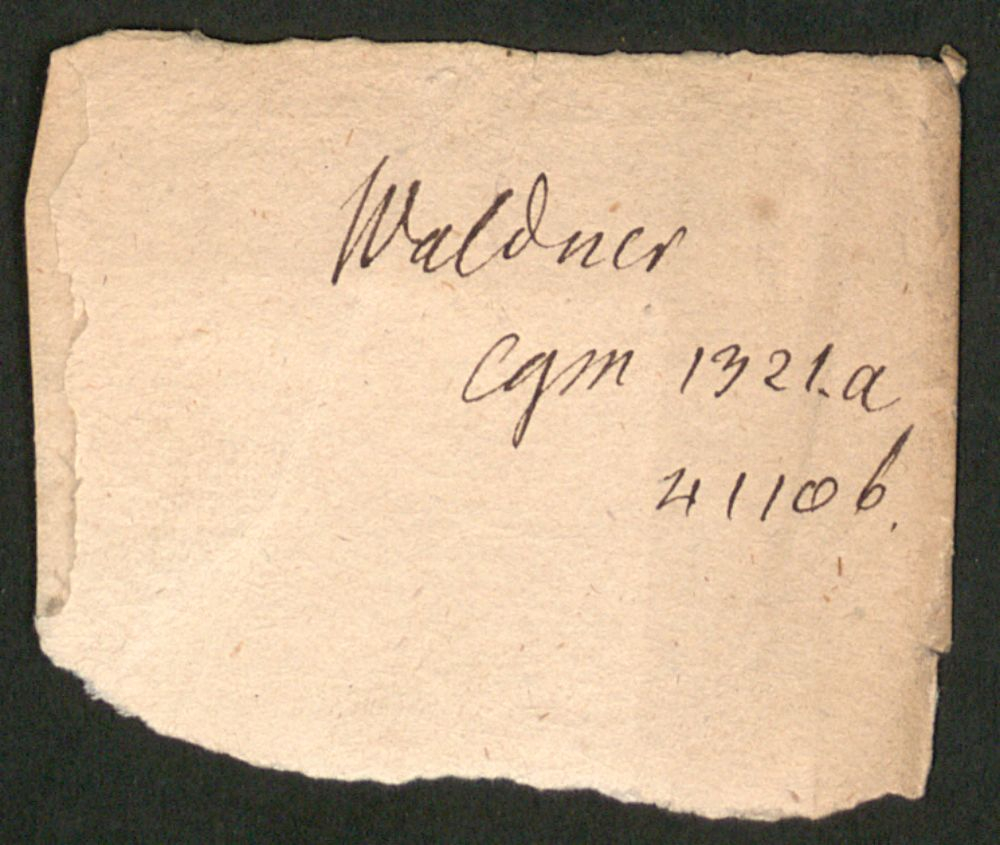 Waldner
Cgm 1321.a
41106.